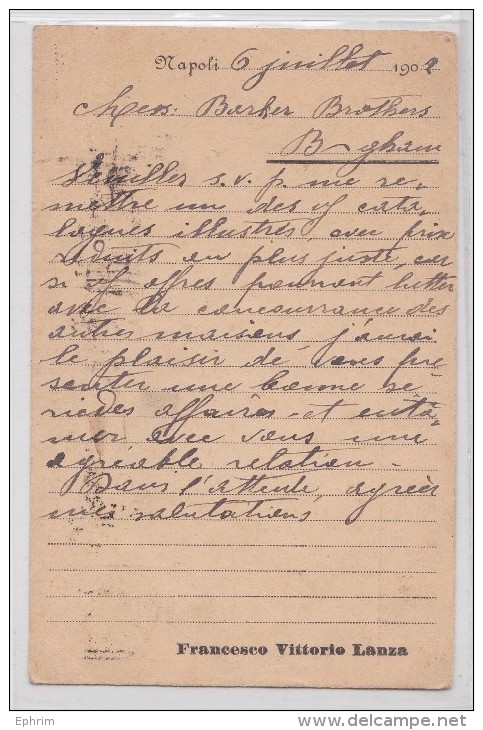 Napoli 6 juillet 1902
Mess. Barker Brothers
B~gham
Veuillez s.v.p. me re-
mettre un des V/ cata-
logues illustrés, avec prix
réduits au plus juste, car
si V/ offres pourront lutter
avec la concourrance des
autres maisons, j'aurai
le plaisir de vous pré-
senter une bonne sé-
rie des affaires et enta-
mer avec vous une
agréable relation -
Dans l'attente, agréez
mes salutations
Francesco Vittorio Lanza
Ephrim
www.delcampe.net